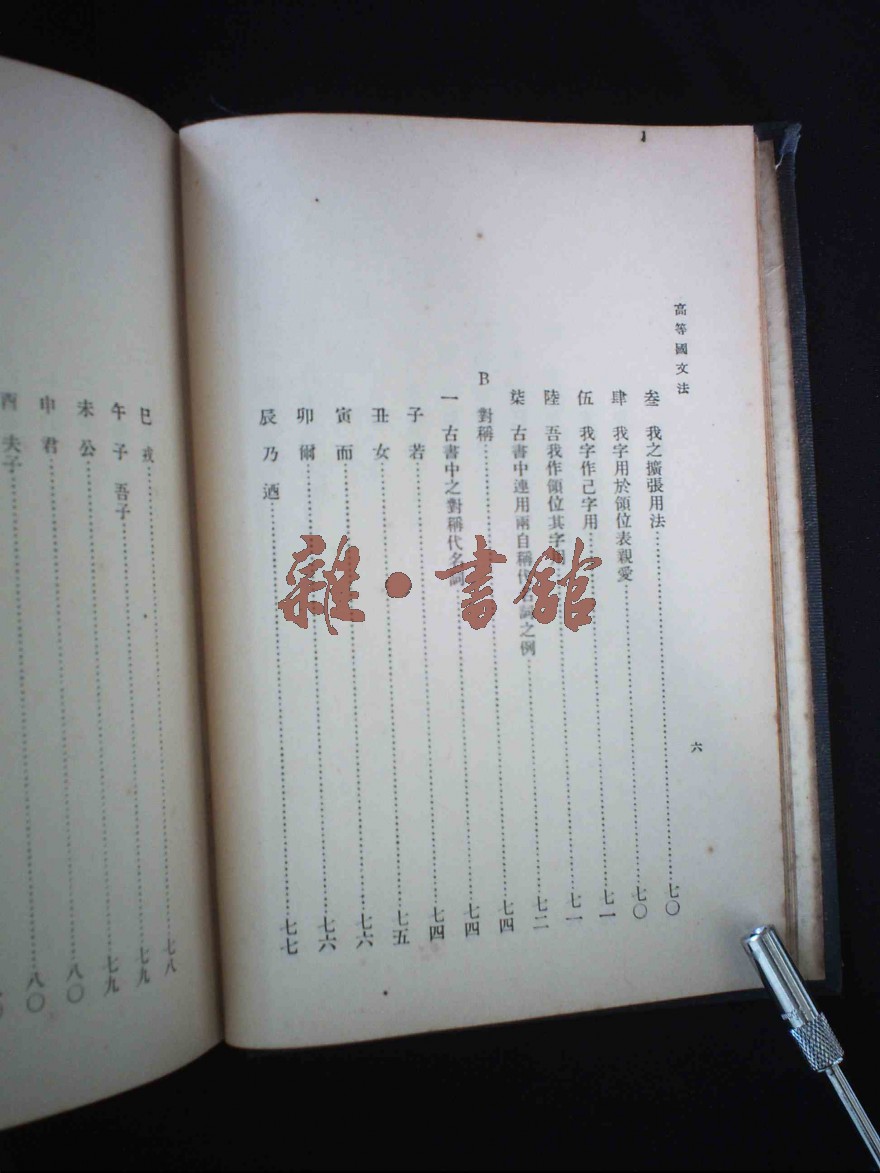 高等國文法
六
叁　我之擴張用法……七〇
肆　我字用於領位表親愛……七〇
伍　我字作己字用……七一
陸　吾我作領位其字用……七一
柒　古書中連用兩自稱代名詞之例……七二
B　對稱……七四
一　古書中之對稱代名詞……七四
子　若……七四
丑　女……七五
寅　而……七六
卯　爾……七六
辰　乃　迺……七七
巳　戎……七八
午　子　吾子……七九
未　公……七九
申　君……八〇
酉　夫子……八〇
雜·書館